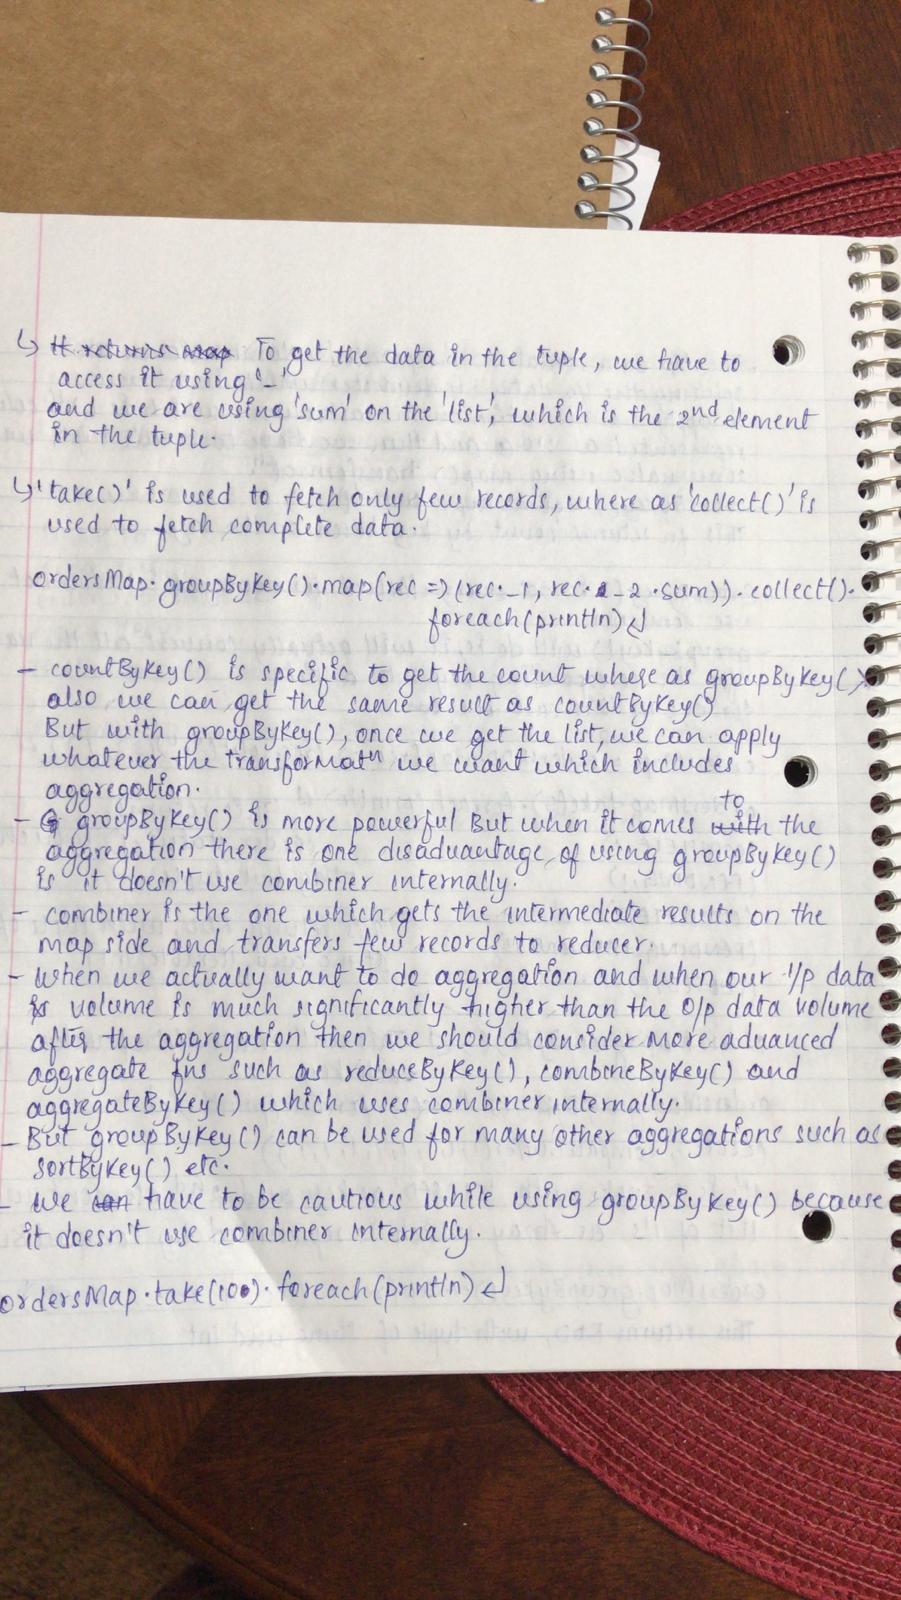 ↳ It returns map To get the data in the tuple, we have to
access it using '_'
and we are using 'sum' on the 'list', which is the 2nd element
in the tuple.
↳ 'take()' is used to fetch only few records, where as 'collect()' is
used to fetch complete data.
ordersMap.groupByKey().map(rec => (rec._1, rec._2.sum)).collect().
foreach(println) ↵
- countByKey() is specific to get the count where as groupByKey()
also we can get the same result as countByKey()
But with groupByKey(), once we get the list, we can apply
whatever the transformatn we want which includes
aggregation.
to
- G groupByKey() is more powerful But when it comes with the
aggregation there is one disadvantage of using groupByKey()
is it doesn't use combiner internally.
- combiner is the one which gets the intermediate results on the
map side and transfers few records to reducer.
- When we actually want to do aggregation and when our i/p data
is volume is much significantly higher than the o/p data volume
after the aggregation then we should consider more advanced
aggregate fns such as reduceByKey(), combineByKey() and
aggregateByKey() which uses combiner internally.
- But groupByKey() can be used for many other aggregations such as
sortByKey() etc.
- we can have to be cautious while using groupByKey() because
it doesn't use combiner internally.
ordersMap.take(100).foreach(println) ↵